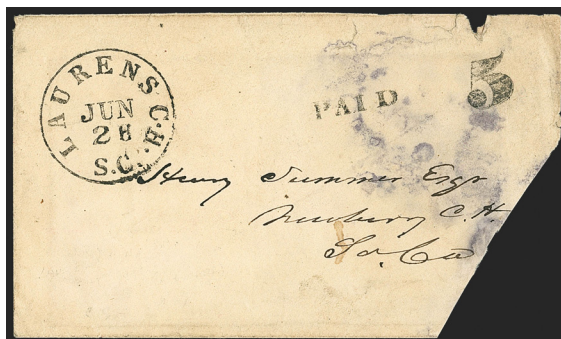 LAURENS C.H.
JUN
28
S.C.
PAID
5
Henry Summer Esqr
Newberry C. H.
So. Ca